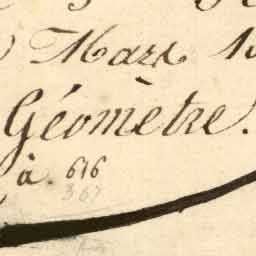 Mars
Géomètre.
à. 616
367